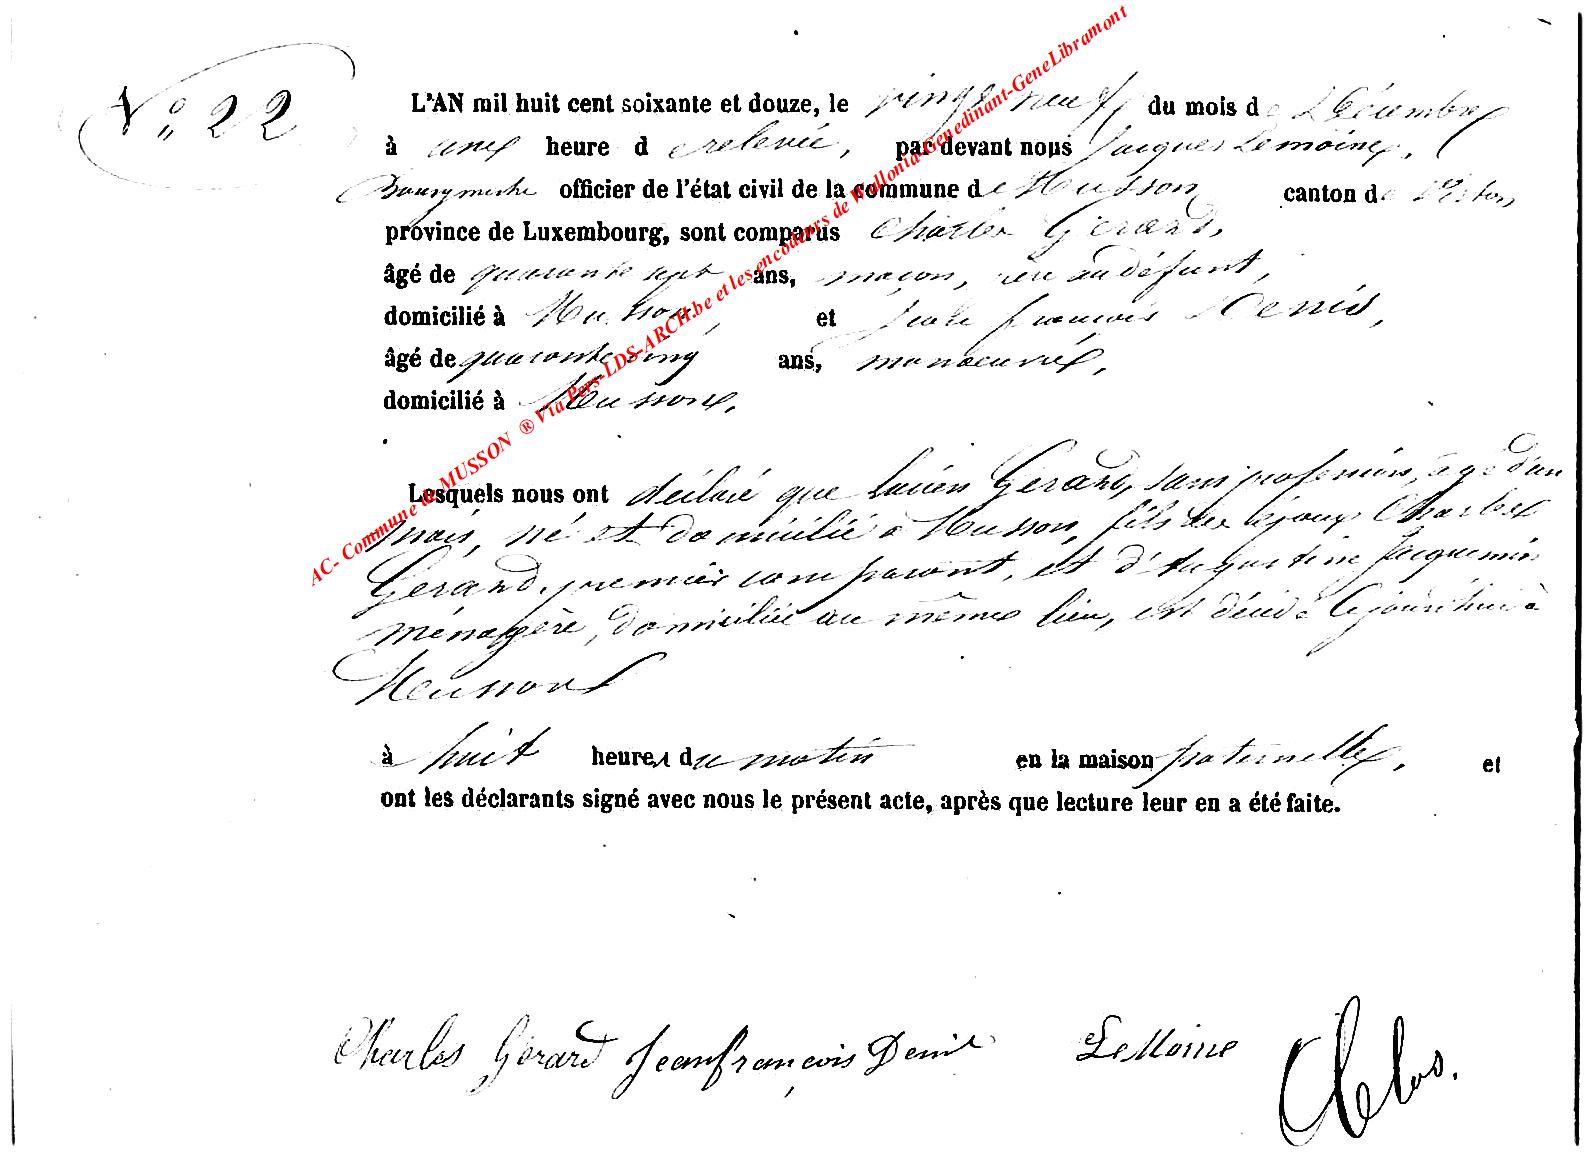 N° 22
L'AN mil huit cent soixante et douze, le vingt neuf du mois de Décembre
à une heure de relevée, par devant nous Jacques Lemoine,
Bourgmestre officier de l'état civil de la commune de Musson canton de Virton,
province de Luxembourg, sont comparus Charles Gérard,
âgé de quarante sept ans, maçon, père au défunt,
domicilié à Musson, et Jean François Denis,
âgé de quarante cinq ans, manoeuvre,
domicilié à Musson,
Lesquels nous ont déclaré que Lucien Gérard, sans profession, âgé d'un
mois, né et domicilié à Musson, fils des époux Charles
Gérard, premier comparant, et d'Augustine Jacquemin
ménagère, domiciliée au même lieu, est décédé cejourd'hui à
Musson
à huit heures du matin en la maison paternelle, et
ont les déclarants signé avec nous le présent acte, après que lecture leur en a été faite.
Charles Gérard Jean françois Denis LeMoine
Clos.
AC- Commune de MUSSON ® Via Pers-LDS-ARCH.be et les encodeurs de Wallonia-Genedinant-GeneLibramont